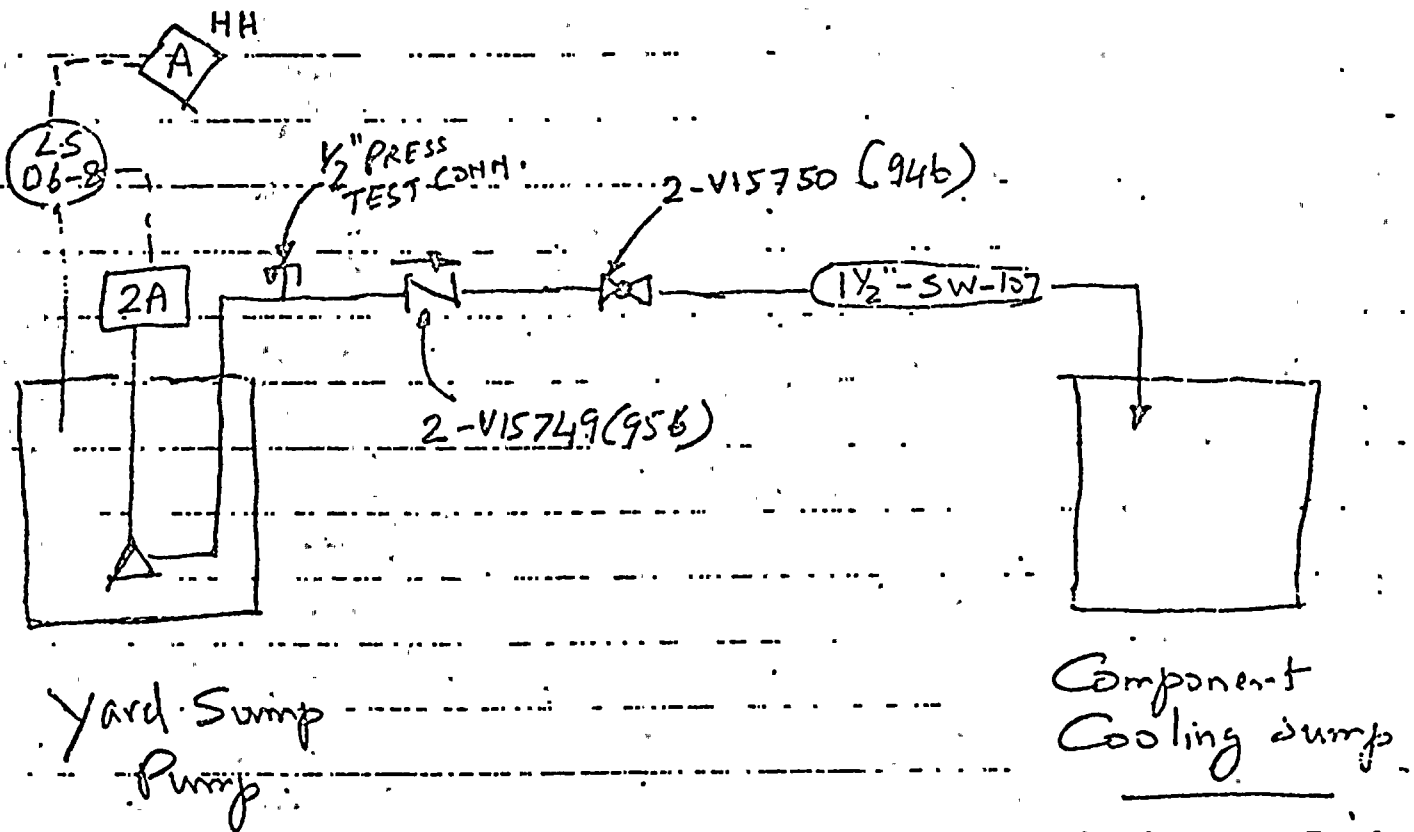 HH
A
LS
06-8
1/2" PRESS
TEST CONN.
2-V15750 (946)
2A
1 1/2"-SW-107
2-V15749 (956)
Yard Sump
Pump
Component
Cooling sump